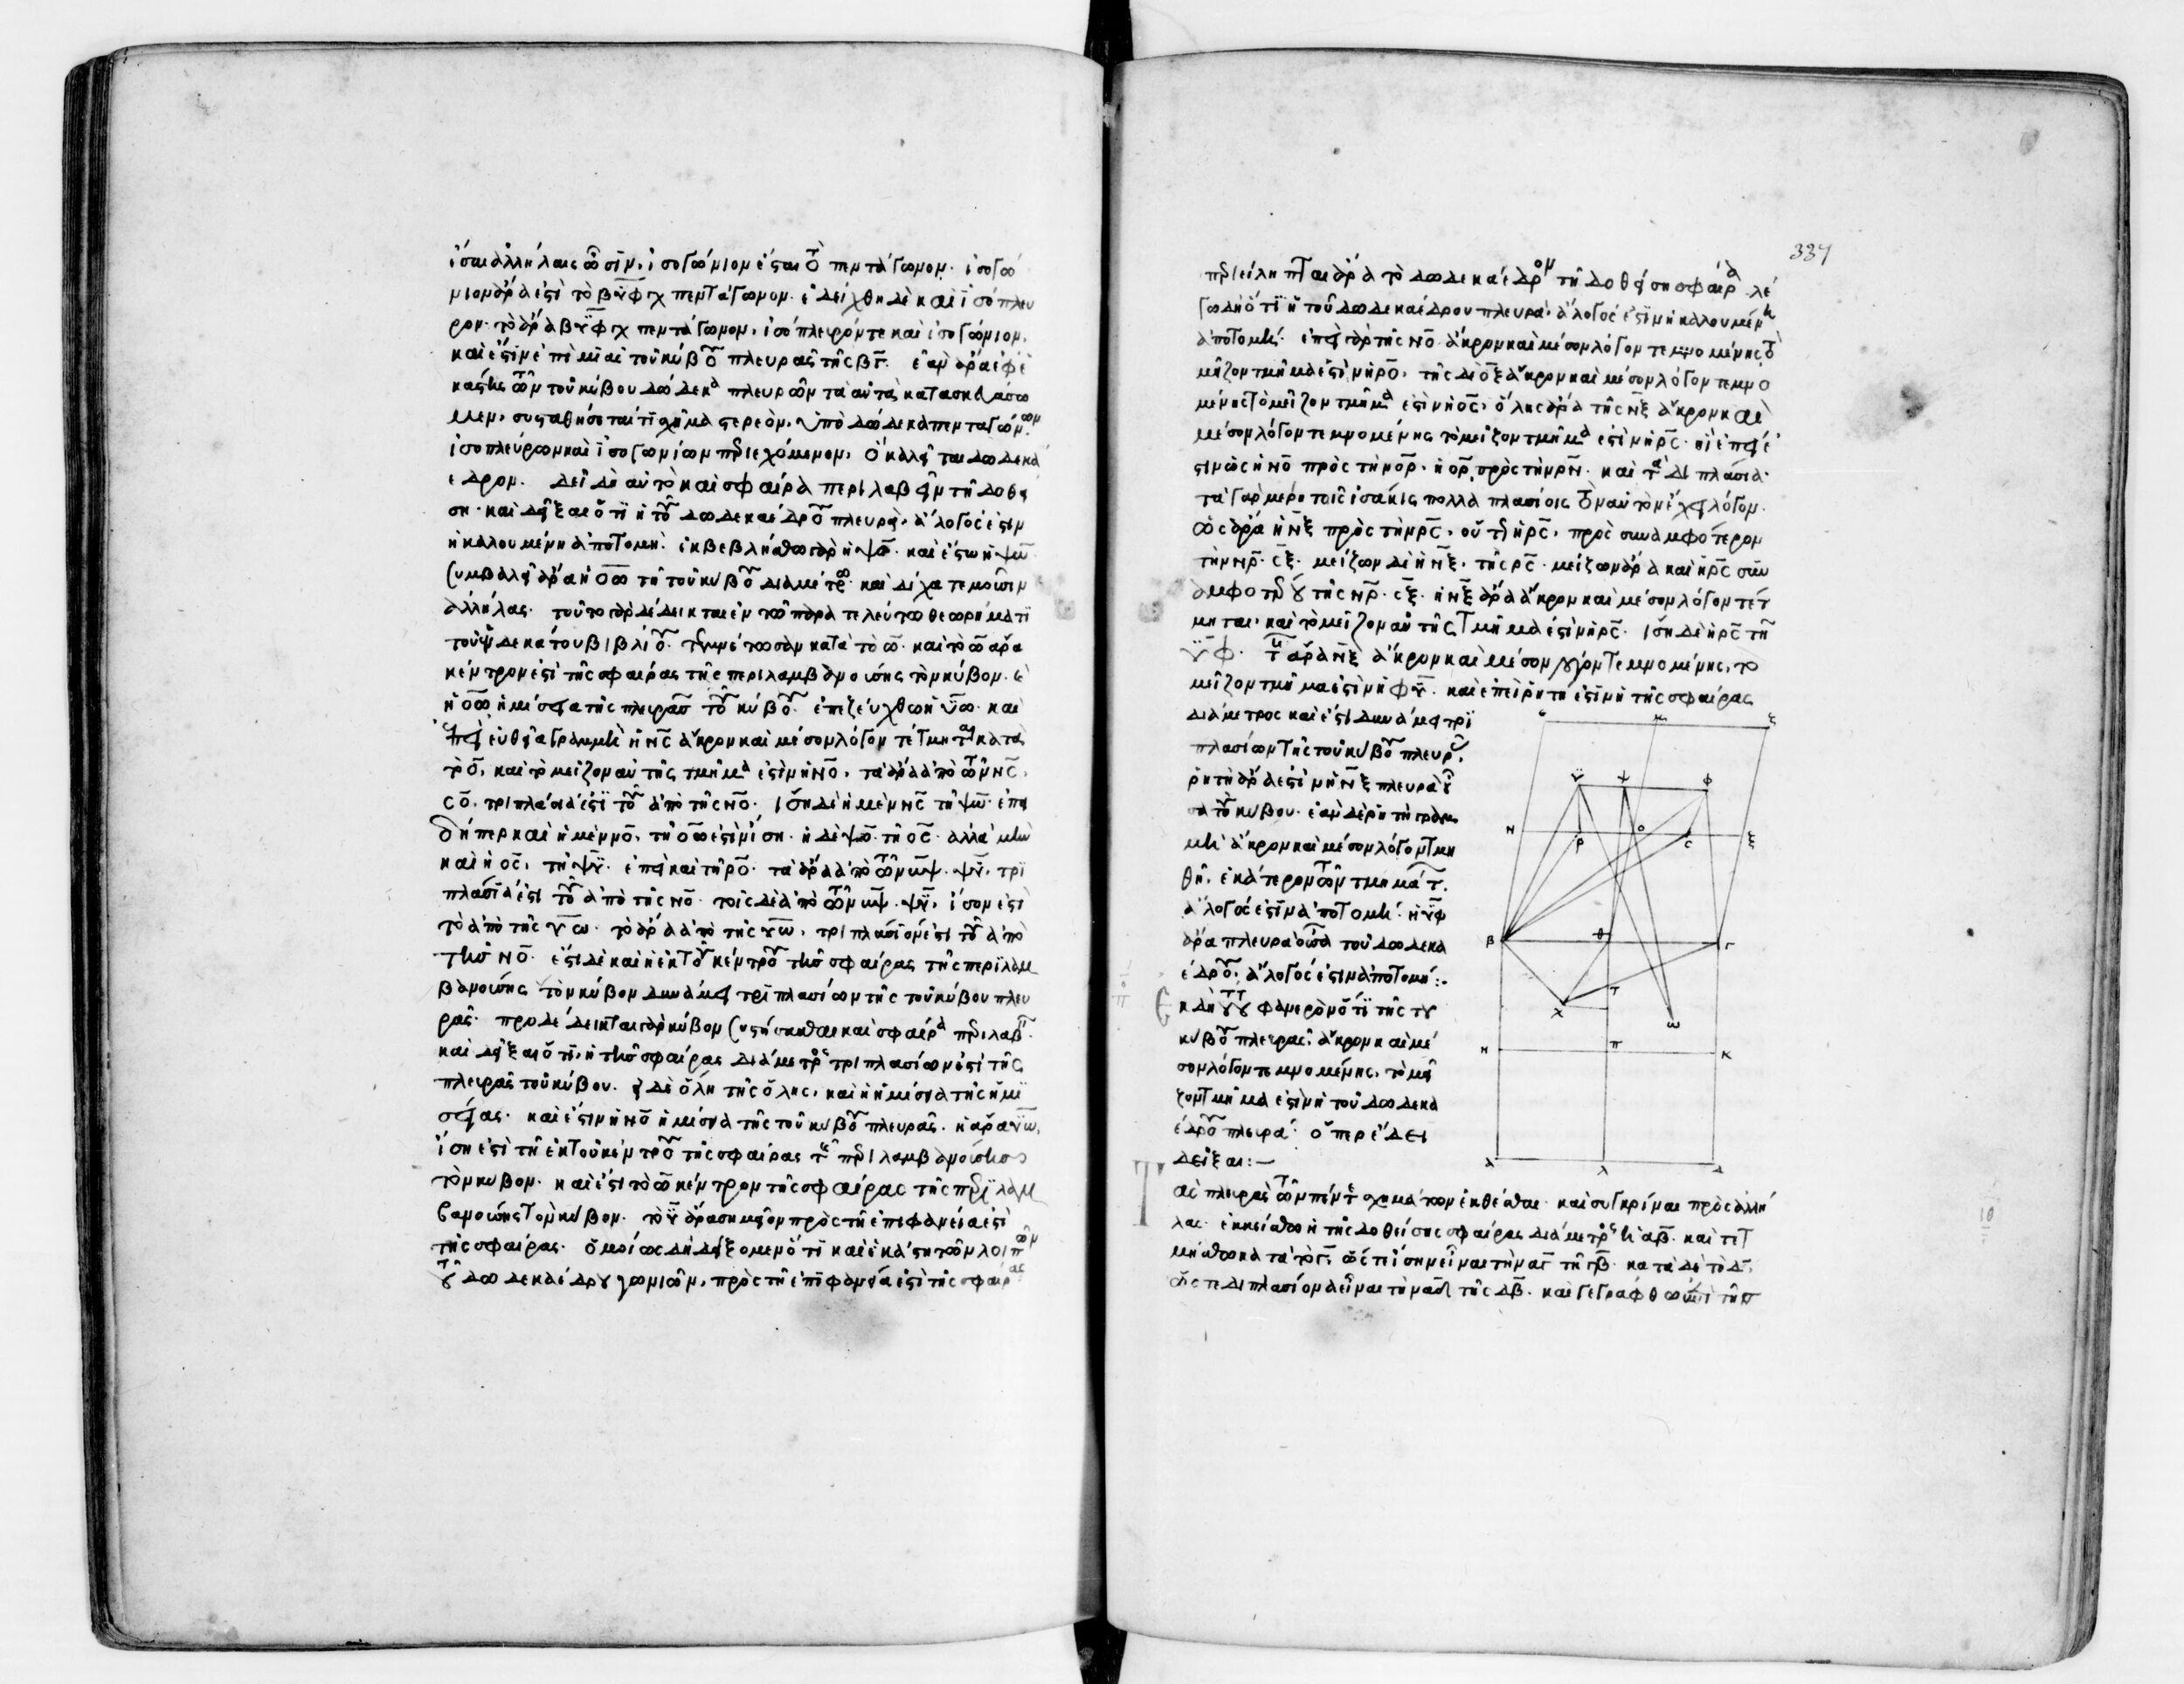 ἴσαι ἀλλήλαις ὦσῖν, ἰσογώνιον ἔσται τὸ πεντάγωνον. ἰσογώ
νιον ἄρα ἐστὶ τὸ βυφγχ πεντάγωνον. ἐδείχθη δὲ καὶ ἰσόπλευ
ρον. τὸ ἄρα βυφγχ πεντάγωνον, ἰσόπλευρόν τε καὶ ἰσογώνιον.
καὶ ἔστιν ἐπὶ μιᾶς τοῦ κύβου πλευρᾶς τῆς βγ. ἐὰν ἄρα ἐφ' ἑ
κάστης τῶν τοῦ κύβου δώδεκα πλευρῶν τὰ αὐτὰ κατασκευάσω
μεν, συσταθήσεταί τι σχῆμα στερεὸν, ὑπὸ δώδεκα πενταγώνων
ἰσοπλεύρων καὶ ἰσογωνίων περιεχόμενον, ὃ καλεῖται δωδεκά
εδρον. δεῖ δὴ αὐτὸ καὶ σφαίρα περιλαβεῖν τῆ δοθεί
ση. καὶ δεῖξαι ὅτι ἡ τοῦ δωδεκαέδρου πλευρὰ, ἄλογός ἐστιν
ἡ καλουμένη ἀποτομή. ἐκβεβλήσθω γὰρ ἡ ψω. καὶ ἔστω ἡ ψω
συμβαλεῖ ἄρα ἡ οω τῆ τοῦ κύβου διαμέτρω. καὶ δίχα τεμοῦσιν
ἀλλήλας. τοῦτο γὰρ δέδεικται ἐν τῶ παρατελεύτω θεωρήματι
τοῦ δεκάτου βιβλίου. τεμνέτωσαν κατὰ τὸ ω. καὶ τὸ ω ἄρα
κέντρον ἐστὶ τῆς σφαίρας τῆς περιλαμβανούσης τὸν κύβον. καὶ
ἡ οω ἡμίσεια τῆς πλευρᾶς τοῦ κύβου. ἐπεζεύχθω ἡ υω. καὶ
ἐπεὶ εὐθεῖα γραμμὴ ἡ νσ ἄκρον καὶ μέσον λόγον τέτμηται κατὰ
τὸ ο, καὶ τὸ μεῖζον αὐτῆς τμῆμα ἐστὶν ἡ νο, τὰ ἄρα ἀπὸ τῶν νσ,
σο, τριπλάσιά ἐστι τοῦ ἀπὸ τῆς νο. ἴση δὲ ἡ μὲν νσ τῆ ψω. ἐπει
δήπερ καὶ ἡ μὲν νο, τῆ οω ἐστὶν ἴση. ἡ δὲ ψο τῆ οσ. ἀλλὰ μὴν
καὶ ἡ οσ, τῆ ψυ. ἐπεὶ καὶ τῆ ρο. τὰ ἄρα ἀπὸ τῶν ωψ. ψυ, τρι
πλάσιά ἐστι τοῦ ἀπὸ τῆς νο. τοῖς δὲ ἀπὸ τῶν ωψ. ψυ, ἴσον ἐστὶ
τὸ ἀπὸ τῆς υω. τὸ ἄρα ἀπὸ τῆς υω, τριπλάσιόν ἐστι τοῦ ἀπὸ
τῆς νο. ἔστι δὲ καὶ ἡ ἐκ τοῦ κέντρου τῆς σφαίρας τῆς περιλαμ
βανούσης τὸν κύβον δυνάμει τριπλασίων τῆς τοῦ κύβου πλευ
ρᾶς. προδέδεικται γὰρ κύβον συστήσασθαι καὶ σφαίρα περιλαβεῖν.
καὶ δεῖξαι ὅτι, ἡ τῆς σφαίρας διάμετρος τριπλασίων ἐστὶ τῆς
πλευρᾶς τοῦ κύβου. εἰ δὲ ὅλη τῆς ὅλης, καὶ ἡ ἡμίσεια τῆς ἡμι
σείας. καὶ ἔστιν ἡ νο ἡμίσεια τῆς τοῦ κύβου πλευρᾶς. ἡ ἄρα υω,
ἴση ἐστὶ τῆ ἐκ τοῦ κέντρου τῆς σφαίρας τῆς περιλαμβανούσης
τὸν κύβον. καὶ ἔστι τὸ ω κέντρον τῆς σφαίρας τῆς περιλαμ
βανούσης τὸν κύβον. τὸ υ ἄρα σημεῖον πρὸς τῆ ἐπιφανεία ἐστὶ
τῆς σφαίρας. ὁμοίως δὴ δείξομεν ὅτι καὶ ἑκάστη τῶν λοιπῶν
τοῦ δωδεκαέδρου γωνιῶν, πρὸς τῆ ἐπιφανεία ἐστὶ τῆς σφαίρας
334
περιείληπται ἄρα τὸ δωδεκάεδρον τῆ δοθείση σφαίρα. λέ
γω δὴ ὅτι ἡ τοῦ δωδεκαέδρου πλευρὰ, ἄλογός ἐστιν ἡ καλουμένη
ἀποτομή. ἐπεὶ γὰρ τῆς νο ἄκρον καὶ μέσον λόγον τεμνομένης τὸ
μεῖζον τμῆμα ἐστὶν ἡ ρο, τῆς δὲ οξ ἄκρον καὶ μέσον λόγον τεμνο
μένης τὸ μεῖζον τμῆμα ἐστὶν ἡ οσ, ὅλης ἄρα τῆς νξ ἄκρον καὶ
μέσον λόγον τεμνομένης τὸ μεῖζον τμῆμα ἐστὶν ἡ ρσ. ἐπεί ἐ
στιν ὡς ἡ νο πρὸς τὴν ορ, ἡ ορ πρὸς τὴν ρν. καὶ τὰ διπλάσια.
τὰ γὰρ μέρη τοῖς ἰσάκις πολλαπλασίοις τὸν αὐτὸν ἔχει λόγον.
ὡς ἄρα ἡ νξ πρὸς τὴν ρσ, οὕτως ἡ ρσ, πρὸς συναμφότερον
τὴν νρ. σξ. μείζων δὲ ἡ νξ, τῆς ρσ. μείζων ἄρα καὶ ἡ ρσ συν
αμφοτέρου τῆς νρ. σξ. ἡ νξ ἄρα ἄκρον καὶ μέσον λόγον τέτ
μηται, καὶ τὸ μεῖζον αὐτῆς τμῆμα ἐστὶν ἡ ρσ. ἴση δὲ ἡ ρσ τῆ
υφ. τῆς ἄρα νξ ἄκρον καὶ μέσον λόγον τεμνομένης, τὸ
μεῖζον τμῆμα ἐστὶν ἡ φυ. καὶ ἐπεὶ ῥητή ἐστιν ἡ τῆς σφαίρας
διάμετρος καὶ ἔστι δυνάμει τρι
πλασίων τῆς τοῦ κύβου πλευρᾶς,
ῥητὴ ἄρα ἐστὶν ἡ νξ πλευρὰ οὖ
σα τοῦ κύβου. ἐὰν δὲ ῥητὴ γραμ
μὴ ἄκρον καὶ μέσον λόγον τμη
θῆ, ἑκάτερον τῶν τμημάτων
ἄλογός ἐστιν ἀποτομή. ἡ υφ
ἄρα πλευρὰ οὖσα τοῦ δωδεκα
έδρου, ἄλογός ἐστιν ἀποτομή:.
ἐκ δὴ τούτου φανερὸν ὅτι τῆς τοῦ
κύβου πλευρᾶς ἄκρον καὶ μέ
σον λόγον τεμνομένης, τὸ μεῖ
ζον τμῆμα ἐστὶν ἡ τοῦ δωδεκα
έδρου πλευρά. ὅπερ ἔδει
δεῖξαι:—
Τὰς πλευρὰς τῶν πέντε σχημάτων ἐκθέσθαι. καὶ συγκρῖναι πρὸς ἀλλή
λας. ἐκκείσθω ἡ τῆς δοθείσης σφαίρας διάμετρος ἡ αβ. καὶ τετ
μήσθω κατὰ τὸ γ, ὥστε ἴσην εἶναι τὴν αγ τῆ γβ. κατὰ δὲ τὸ δ,
ὥστε διπλασίονα εἶναι τὴν αδ τῆς δβ. καὶ γεγράφθω ἐπὶ τῆς
ε μ ζ
υ ψ φ
ν ρ ο σ ξ
β θ γ
χ τ ω
η π κ
α λ δ
10